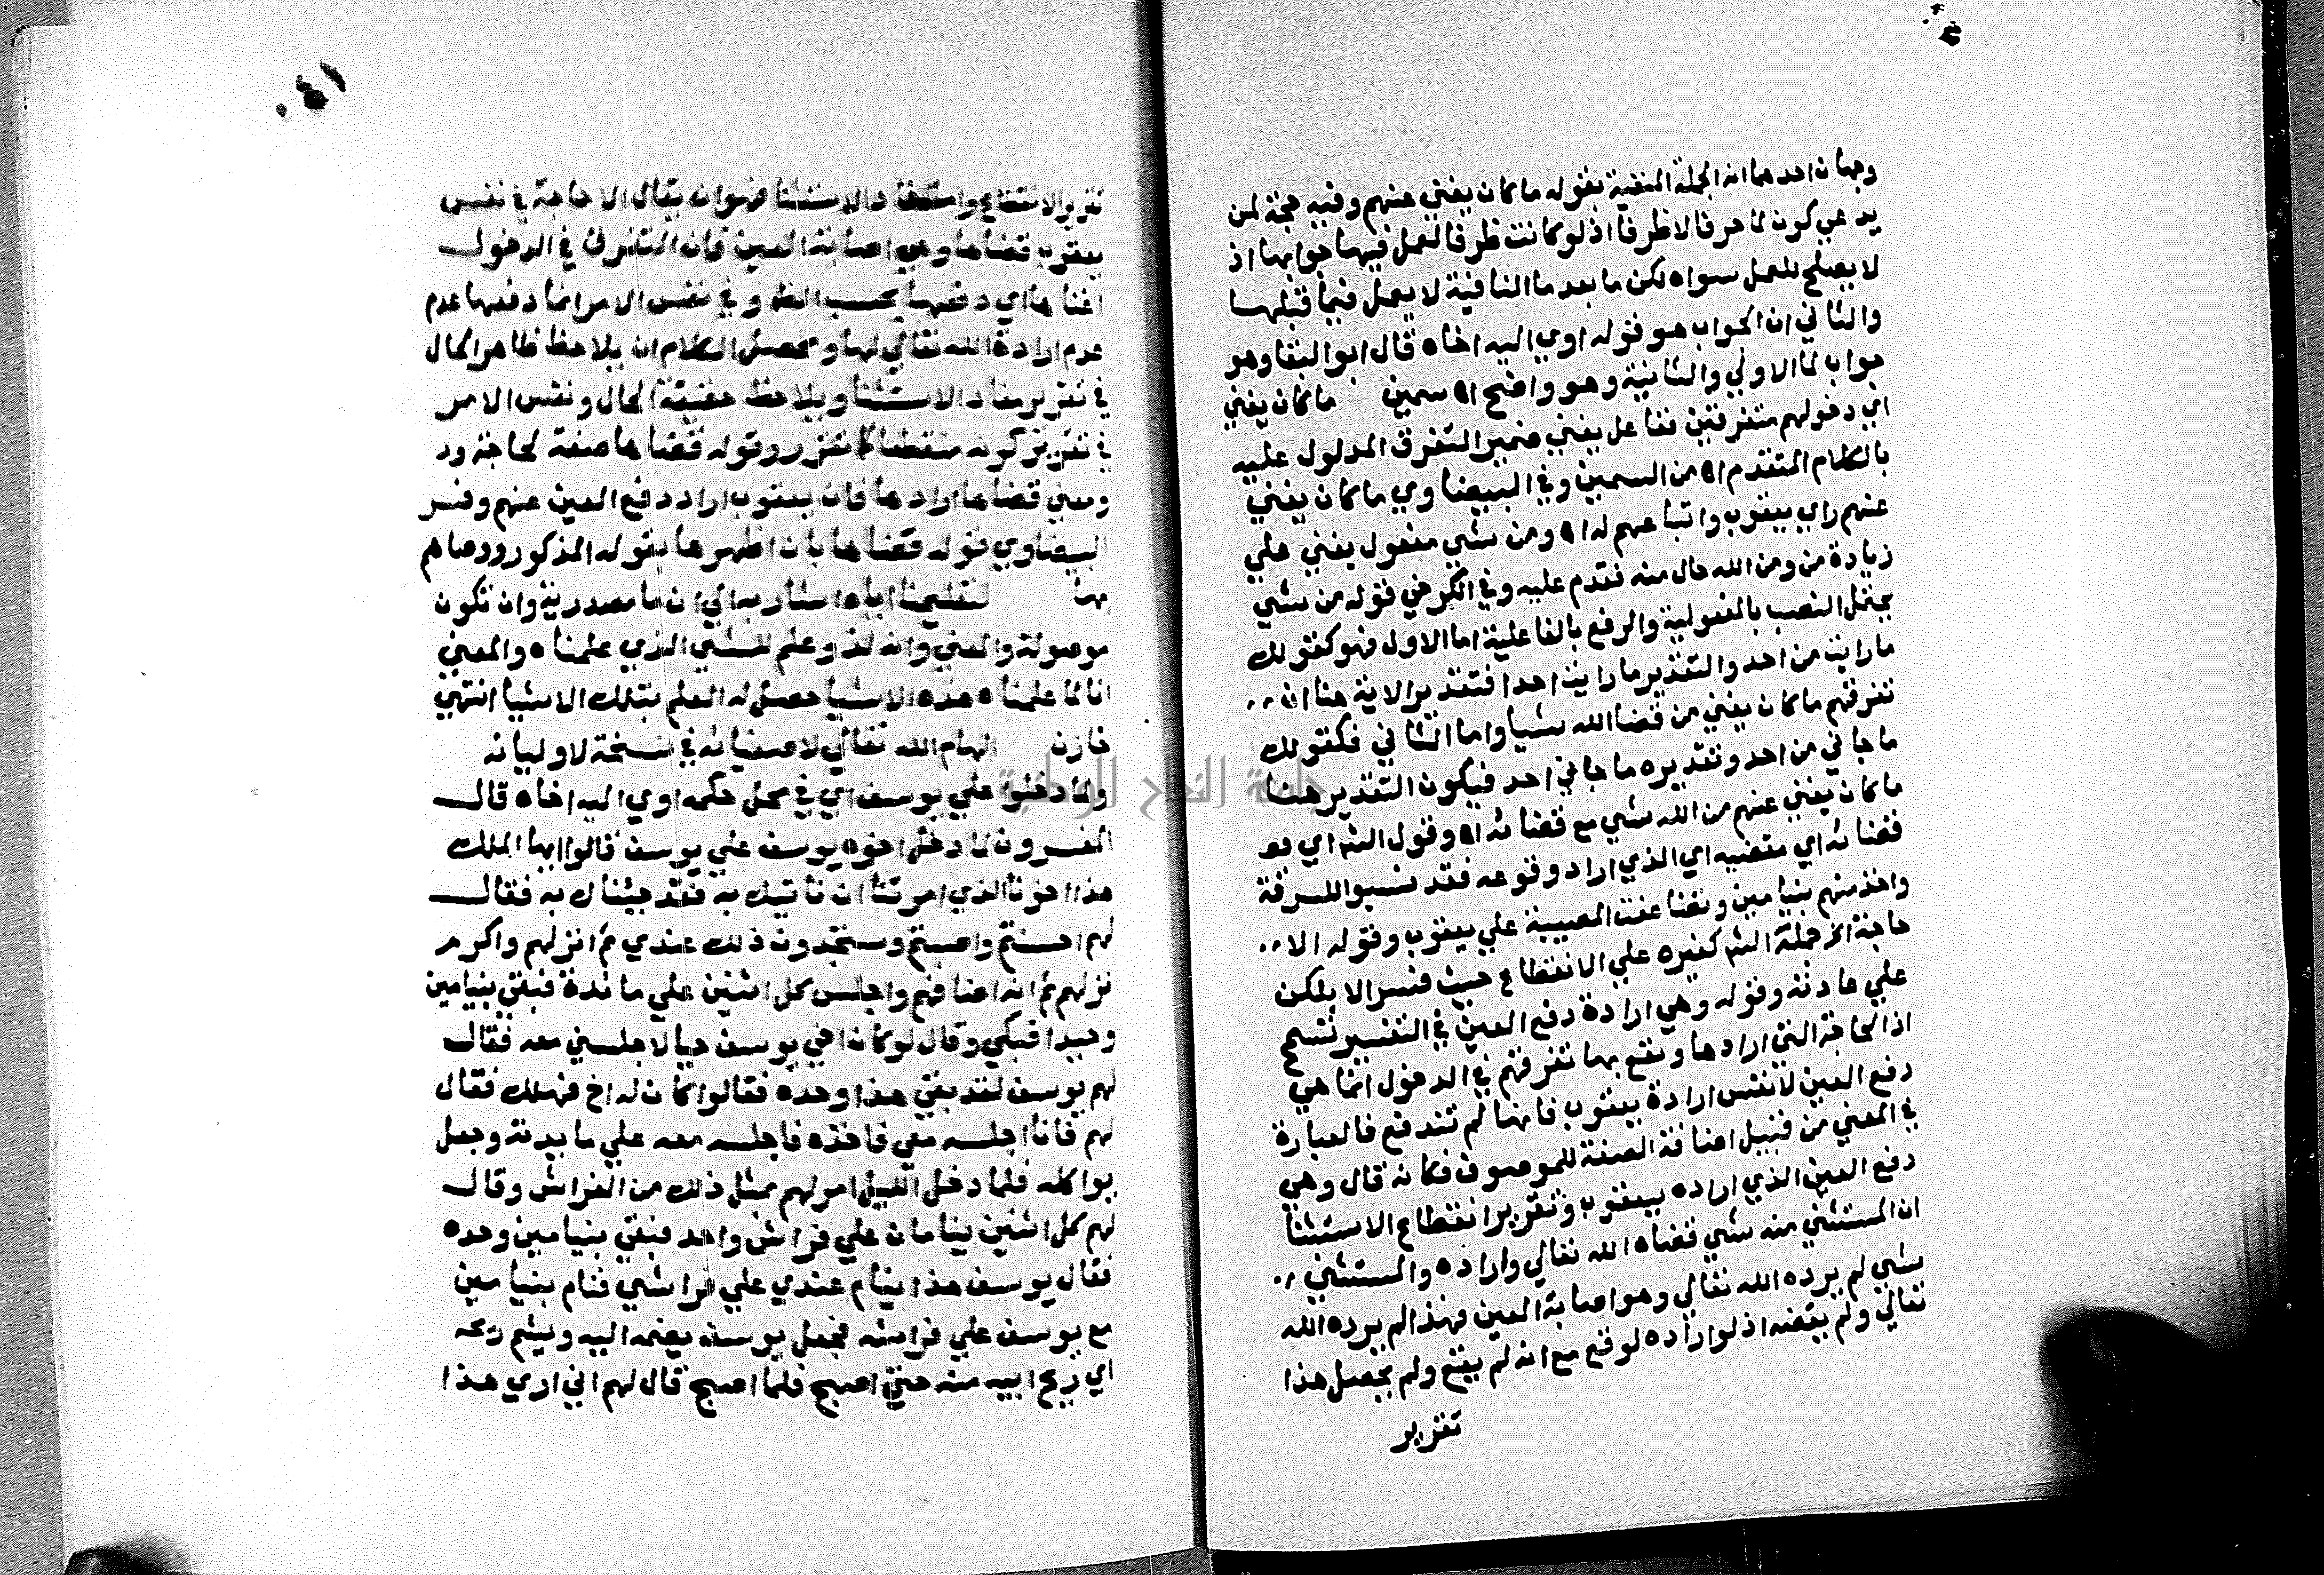 وجهان احدهما انه الجملة المنفية بقوله ما كان يغني عنهم وفيه حجة لمن
يدعي كون لما حرفا لا ظرفا اذ لو كانت ظرفا لعمل فيها جوابها اذ
لا يصلح للعمل سواه لكن ما بعد ما النافية لا يعمل فيما قبلها
والثاني ان الجواب هو قوله اوي اليه اخاه قال ابو البقا وهو
جواب لما الاولي والثانية وهو واضح اه سمين ما كان يغني
اي دخولهم متفرقين ففاعل يغني ضمير التفرق المدلول عليه
بالكلام المتقدم اه من السمين وفي البيضاوي ما كان يغني
عنهم راي يعقوب واتباعهم له اه ومن شي مفعول يغني علي
زيادة من ومن الله حال منه فقدم عليه وفي الكرخي قوله من شي
يحتمل النصب بالمفعولية والرفع بالفاعلية اما الاول فهو كقولك
ما رايت من احد والتقدير ما رايت احدا فتقدير الاية هنا ان
تفرقهم ما كان يغني من قضا الله شيا واما الثاني فكقولك
ما جاني من احد وتقديره ما جاني احد فيكون التقدير هنا
ما كان يغني عنهم من الله شي مع قضائه اه وقول الش اي
قضائه اي مقضيه اي الذي اراد وقوعه فقد نسبوا للسرقة
واخذ منهم بنيامين وتضاعفت المصيبة علي يعقوب وقوله الا
حاجة الخ حمله الش كغيره علي الانقطاع حيث فسر الا بلكن
علي عادته وقوله وهي ارادة دفع العين في التفسير تسمح
اذ الحاجة التي ارادها ونفع بها تفرقهم في الدخول انما هي
دفع العين لا نفس ارادة يعقوب فانها لم تندفع فالعبارة
في المعني من قبيل اضافة الصفة للموصوف فكانه قال وهي
دفع العين الذي اراده يعقوب وتقرير انقطاع الاستثنا
ان المستثني منه شي قضاه الله تعالي واراده والمستثني
شي لم يرده الله تعالي وهو اصابة العين فهذا لم يرده الله
تعالي ولم يقضه اذ لو اراده لوقع مع انه لم يقع ولم يحصل هذا
تقرير
٤١
تقرير الانقطاع واما مفاد الاستثنا فهو ان يقال الا حاجة في نفس
يعقوب قضاها وهي اصابة العين فان التفرق في الدخول
اغناها اي دفعها بحسب الظ وفي نفس الامر انما دفعها عدم
عدم ارادة الله تعالي لها ومحصل الكلام ان يلاحظ ظاهر الحال
في تقرير مفاد الاستثنا ويلاحظ حقيقة الحال ونفس الامر
في تقرير كونه منقطعا كما تقرر وقوله قضاها صفة لحاجة
ومعني قضاها ارادها فان يعقوب اراد دفع العين عنهم وفسر
البيضاوي قوله قضاها بان اظهرها بقوله المذكور ووصاهم
بها لتعليمنا اياه اشار به الي ان ما مصدرية وان تكون
موصولة والمعني وانه لذو علم للشي الذي علمناه والمعني
انا لما علمناه هذه الاشيا حصل له العلم بتلك الاشيا انتهي
خازن الهام الله تعالي لاصفيائه في نسخة لاوليائه
ولما دخلوا علي يوسف اي في محل حكمه اوي اليه اخاه قال
المفسرون لما دخل اخوه يوسف علي يوسف قالوا ايها الملك
هذا اخونا الذي امرتنا ان ناتيك به فقد جيناك به فقال
لهم احسنتم واصبتم وستجدون ذلك عندي ثم انزلهم واكرم
نزلهم ثم انه اضافهم واجلس كل اثنين علي مائدة فبقي بنيامين
وحيدا فبكي وقال لو كان اخي يوسف حيا لاجلسني معه فقال
لهم يوسف لقد بقي هذا وحده فقالوا كان له اخ فهلك فقال
لهم فانا اجلسه معي فاخذه فاجلسه معه علي مايدته وجعل
يواكله فلما دخل الليل امر لهم بمثل ذلك من الفراش وقال
لهم كل اثنين ينامان علي فراش واحد فبقي بنيامين وحده
فقال يوسف هذا ينام عندي علي فراشي فنام بنيامين
مع يوسف علي فراشه فجعل يوسف يضمه اليه ويشم ريحه
اي ريح ابيه منه حتي اصبح فلما اصبح قال لهم اني اري هذا
جامعة النجاح الوطنية